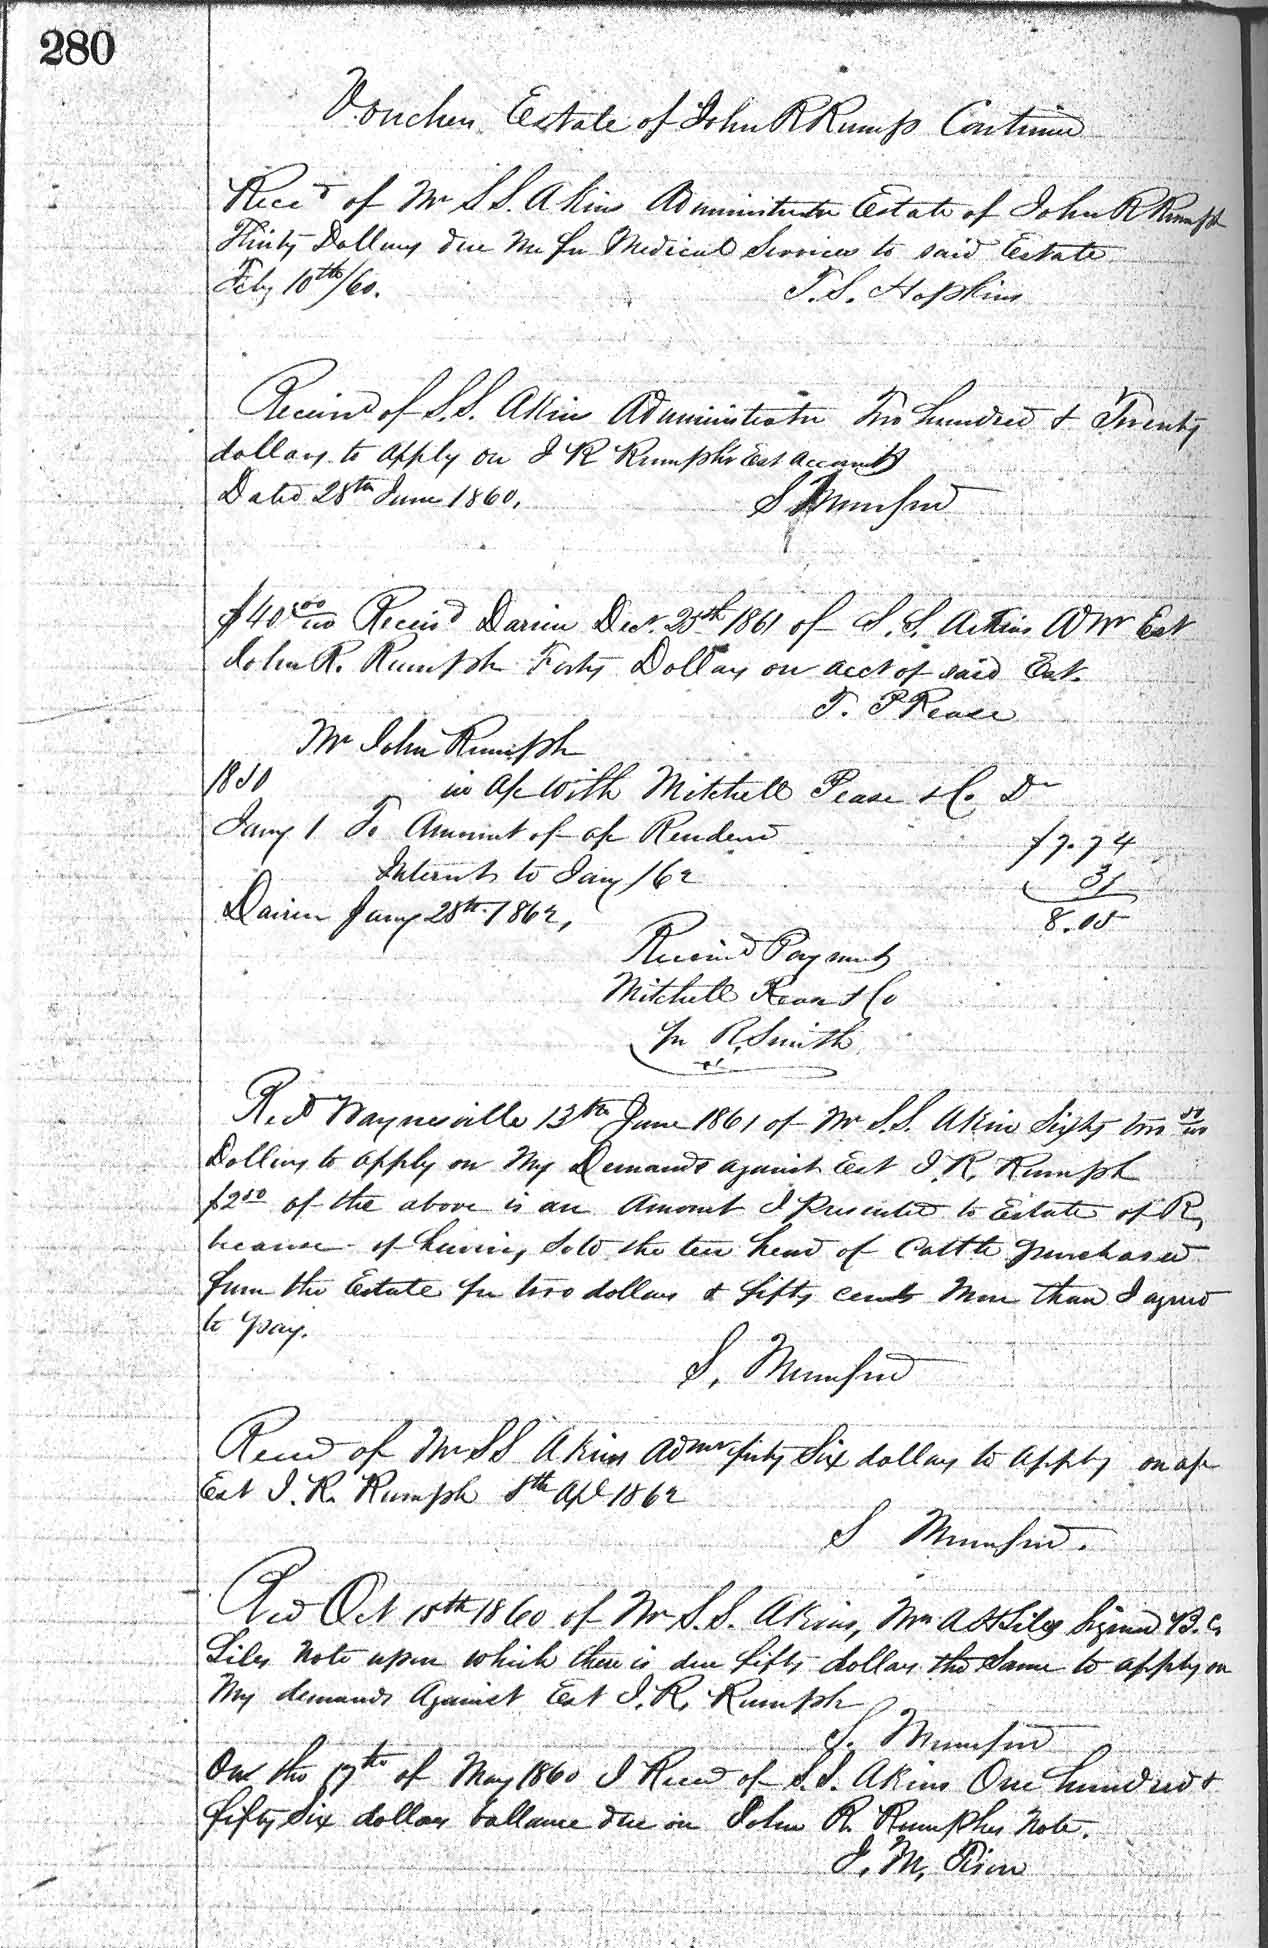 280
Vouchers Estate of John R Rumph Continued
Reced of Mr S. S. Akins Administrator Estate of John R Rumph
Thirty Dollars due me for Medical Services to said Estate
Feby 10th/60. T. S. Hopkins
Received of S. S. Akins Administrator Two hundred & Twenty
dollars to apply on J R Rumph's Est account
Dated 28th June 1860. S Mumford
$40 00/100 Receivd Darien Decr. 25th 1861 of S. S. Atkins Admr Est
John R. Rumph Forty Dollars on acct of said Est.
T. P Pease
Mr John Rumph
in a/c with Mitchell Pease & Co Dr
Jany 1 To Amount of a/c Rendered $7.74
Interest to Jany /62 31
Darien Jany 28th 1862, 8.05
Received Payment
Mitchell Pease & Co
per R. Smith
Recd Waynesville 13th June 1861 of Mr S. S. Akins Sixty two 50/100
Dollars to apply on My Demands against Est J. R. Rumph
$2 50 of the above is an Amount I Presented to Estate of R,
because of having sold the ten head of Cattle purchased
from the Estate for two dollars & fifty cents More than I agreed
to pay.
S. Mumford
Recd of Mr S S Akins Admr fifty Six dollars to apply on a/c
Est J. R. Rumph 8th Apl 1862
S Mumford.
Recd Oct 15th 1860 of Mr S. S. Akins, Wm A H Siles Signed B. C.
Siles Note upon which there is due fifty dollars the Same to apply on
My demands Against Est J. R. Rumph
S. Mumford
On the 17th of May 1860 I Recd of S. S. Akins One hundred &
fifty Six dollars ballance due on John R. Rumphs Note.
J. M. Tison